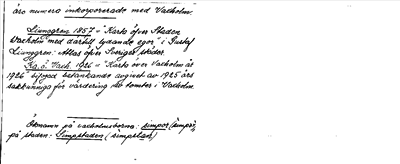 äro numera inkorporerade med Vaxholm.
Ljunggren 1857 = "Karta öfver Staden
Waxholm med dertill lydande egor" i Gustaf
Ljunggren: Atlas öfver Sveriges städer.
Ka. ö. Vaxh. 1926 = "Karta över Vaxholm år
1926" bifogad betänkande avgivet av 1925 års
sakkunniga för värdering av tomter i Vaxholm.
Öknamn på vaxholmsborna: simpor (simpar),
på staden: Simpstaden (simpstan)